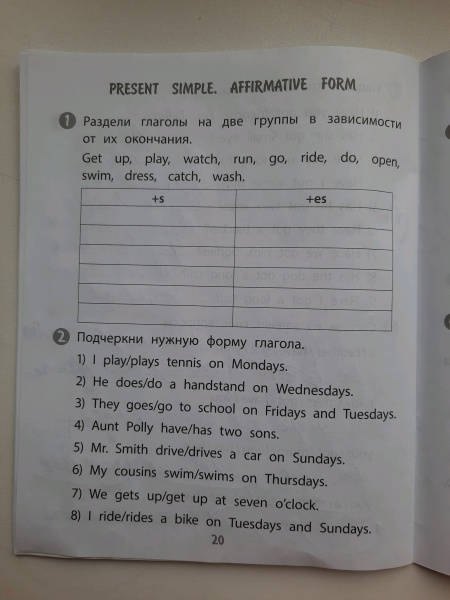 PRESENT SIMPLE. AFFIRMATIVE FORM
1 Раздели глаголы на две группы в зависимости
от их окончания.
Get up, play, watch, run, go, ride, do, open,
swim, dress, catch, wash.
+s +es
2 Подчеркни нужную форму глагола.
1) I play/plays tennis on Mondays.
2) He does/do a handstand on Wednesdays.
3) They goes/go to school on Fridays and Tuesdays.
4) Aunt Polly have/has two sons.
5) Mr. Smith drive/drives a car on Sundays.
6) My cousins swim/swims on Thursdays.
7) We gets up/get up at seven o’clock.
8) I ride/rides a bike on Tuesdays and Sundays.
20